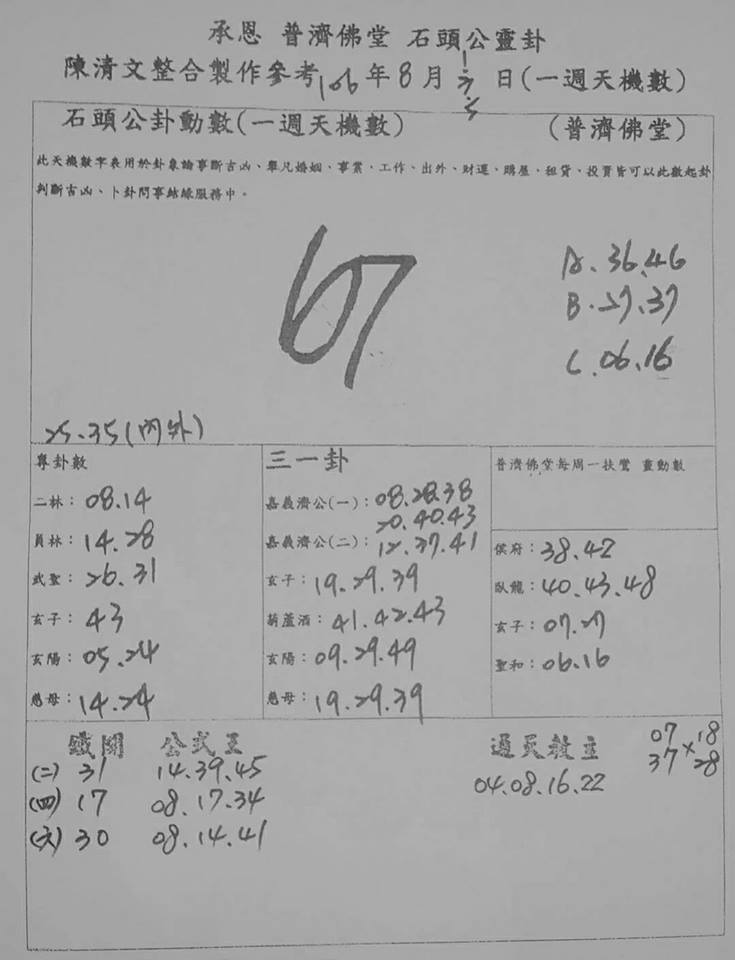 承恩 普濟佛堂 石頭公靈卦
陳清文整合製作參考106年8月 日(一週天機數)
石頭公卦動數(一週天機數) (普濟佛堂)
此天機數字表用於卦象論事斷吉凶、舉凡婚姻、事業、工作、出外、財運、購屋、租貸、投資皆可以此數起卦
判斷吉凶、卜卦問事結緣服務中。
67
A.36.46
B.27.37
C.06.16
25.35(內外)
專卦數
二林:08.14
員林:14.28
武聖:26.31
玄子:43
玄陽:05.24
慈母:14.24
三一卦
嘉義濟公(一):08.28.38
20.40.43
嘉義濟公(二):12.37.41
玄子:19.29.39
葫蘆酒:41.42.43
玄陽:09.29.49
慈母:19.29.39
普濟佛堂每周一扶鸞 靈動數
侯府:38.42
臥龍:40.43.48
玄子:07.27
聖和:06.16
鐵關 公式王
(二) 31 14.39.45
(四) 17 08.17.34
(六) 30 08.14.41
通天教主
04.08.16.22
07 18
37 × 28